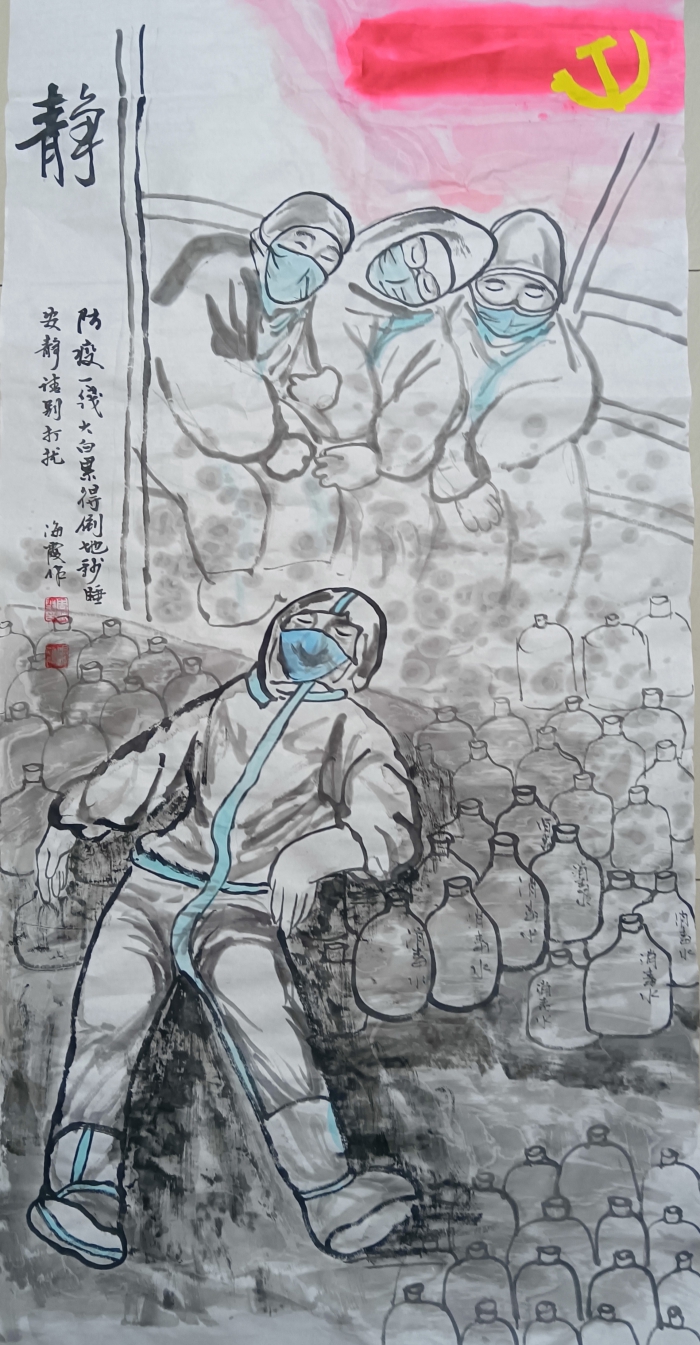 静
防疫一线大白累得倒地秒睡
安静请别打扰
海霞作
消毒水
消毒水
消毒水
消毒水
消毒水
消毒水